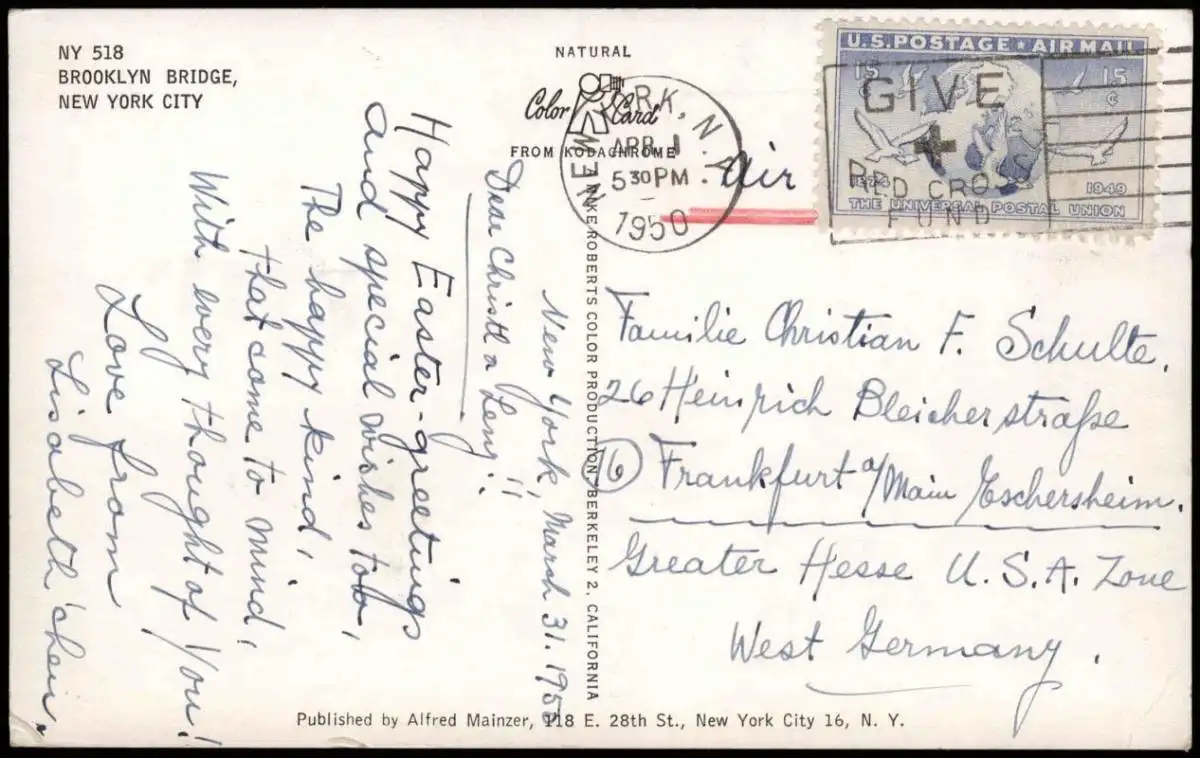 NY 518
BROOKLYN BRIDGE,
NEW YORK CITY
NATURAL
Color Card
FROM KODACHROME
MIKE ROBERTS COLOR PRODUCTION, BERKELEY 2, CALIFORNIA
Published by Alfred Mainzer, 118 E. 28th St., New York City 16, N. Y.
NEW YORK, N.Y.
APR 1
5 30 PM
1950
GIVE
+
RED CROSS
FUND
U.S. POSTAGE ★ AIR MAIL
15 ¢
15 ¢
1874
1949
THE UNIVERSAL POSTAL UNION
Air
New York, March 31. 1950
Dear Christl &
Happy Easter-greetings
and special wishes too,
The happy kind,
that come to mind,
With every thought of You!
Love from
Lisabeth'chen.
Familie Christian F. Schulte.
26 Heinrich Bleicherstraße
(16) Frankfurt a/Main Eschersheim.
Greater Hesse U.S.A. Zone
West Germany.